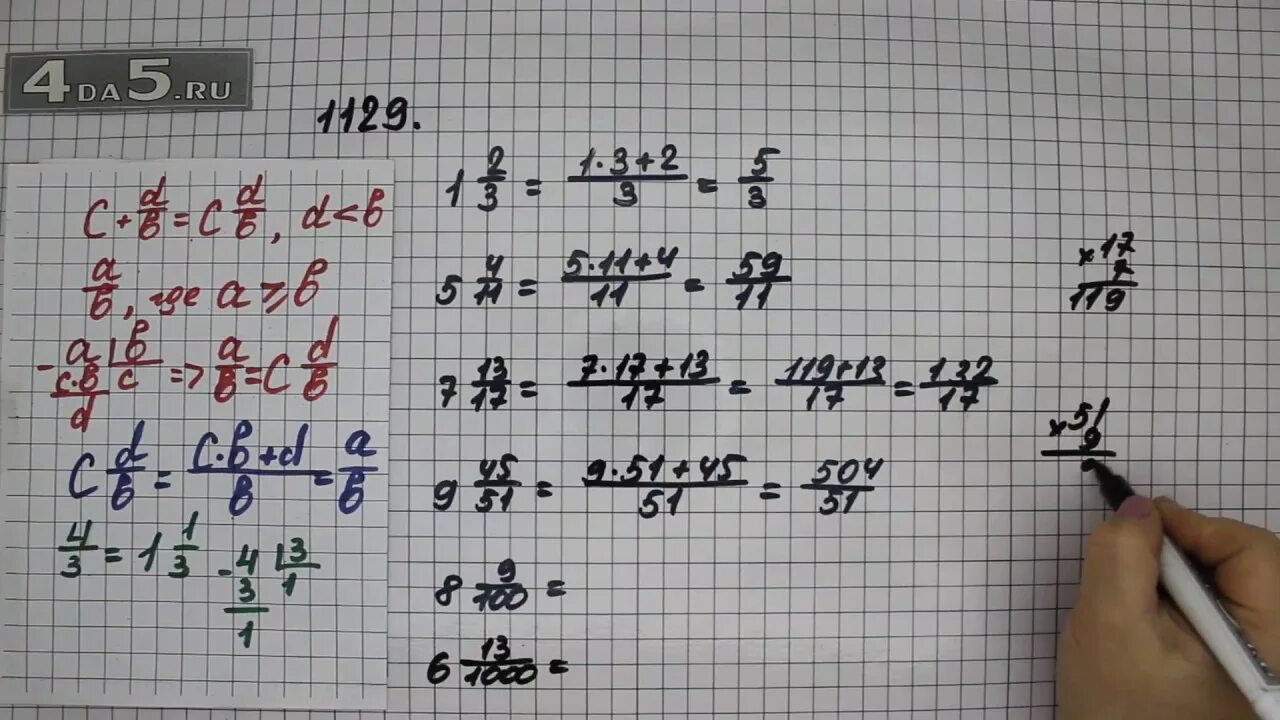 4DA5.RU
1129.
c + d/в = c d/в, d < в
a/в, где a ≥ в
- a | в
c·в | c => a/в = c d/в
d
c d/в = (c·в + d)/в = a/в
4/3 = 1 1/3
- 4 | 3
3 | 1
1
1 2/3 = (1·3+2)/3 = 5/3
5 4/11 = (5·11+4)/11 = 59/11
7 13/17 = (7·17+13)/17 = (119+13)/17 = 132/17
9 45/51 = (9·51+45)/51 = 504/51
8 9/100 =
6 13/1000 =
× 17
7
119
× 51
9